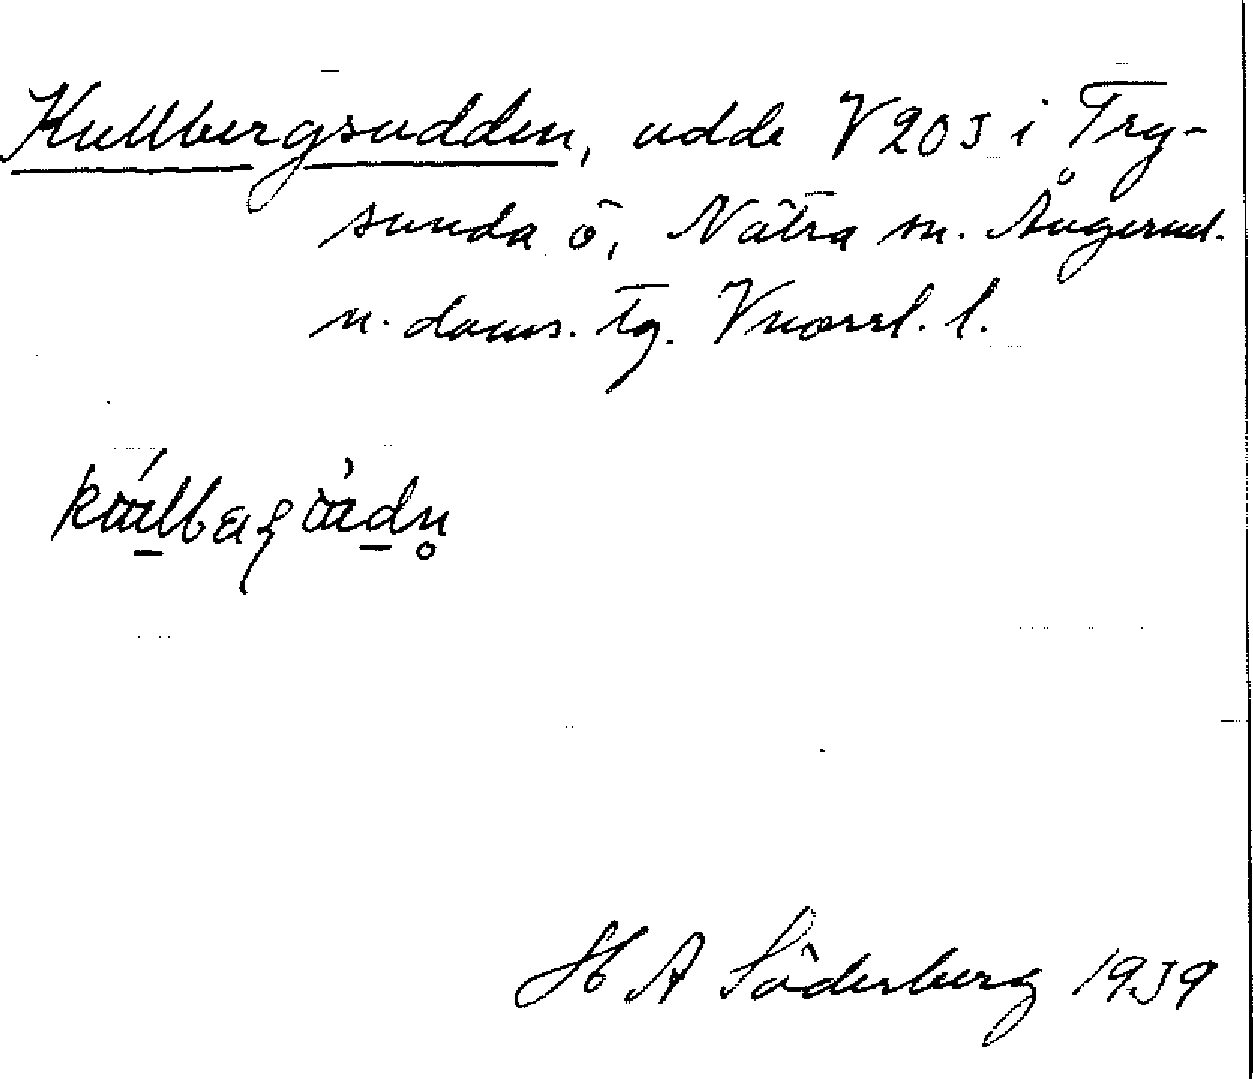 Kullbergsudden, udde V 203 i Try-
sunda ö, Nätra sn. Ångerml.
n. doms. tg. Vnorrl. l.
H A Söderberg 1939